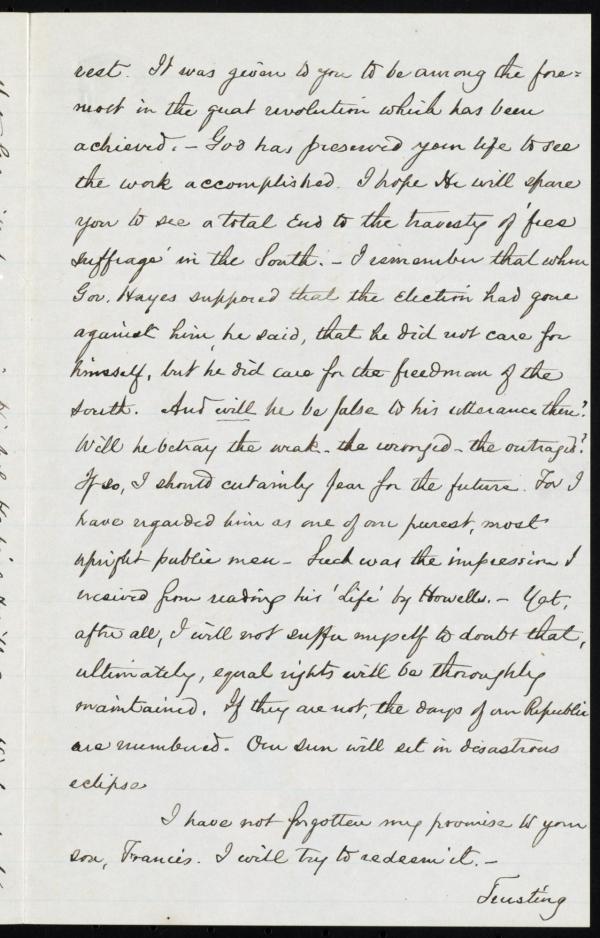 rest. It was given to you to be among the fore=
most in the great revolution which has been
achieved. – God has preserved your life to see
the work accomplished. I hope He will spare
you to see a total End to the travesty of 'free
suffrage' in the South. – I remember that when
Gov. Hayes supposed that the Election had gone
against him, he said, that he did not care for
himself, but he did care for the freedman of the
south. And will he be false to his utterance then?
Will he betray the weak – the wronged – the outraged?
If so, I should certainly fear for the future. For I
have regarded him as one of our purest, most
upright public men – Such was the impression I
received from reading his 'Life' by Howells. – Yet,
after all, I will not suffer myself to doubt that,
ultimately, equal rights will be thoroughly
maintained. If they are not, the days of our Republic
are numbered. Our sun will set in disastrous
eclipse
I have not forgotten my promise to your
son, Francis. I will try to redeem it. –
Trusting